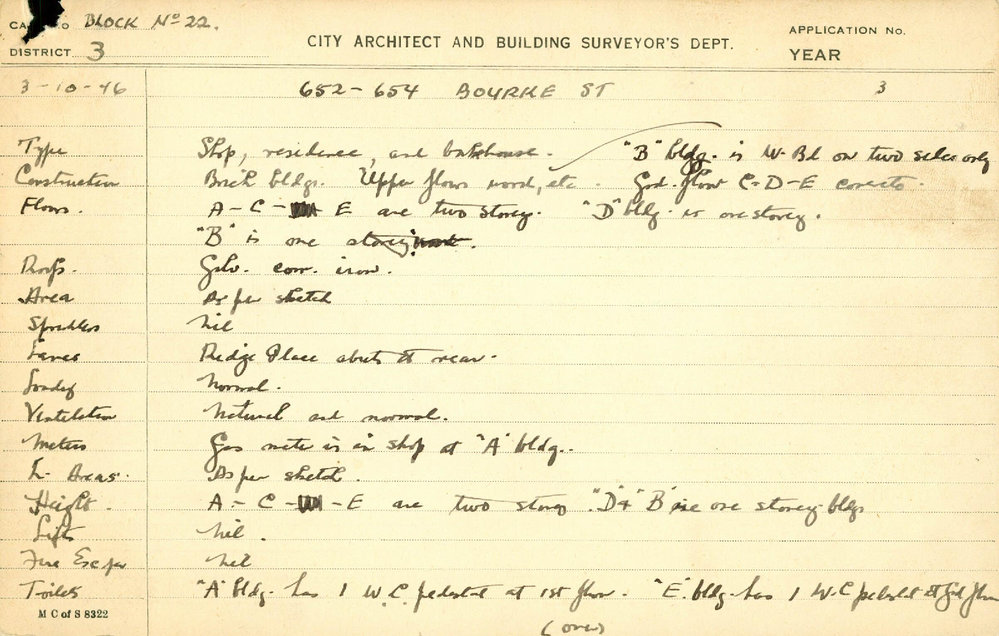 CA No BLOCK No 22.
DISTRICT 3
CITY ARCHITECT AND BUILDING SURVEYOR'S DEPT.
APPLICATION No.
YEAR
3-10-46 652-654 BOURKE ST 3
Type Shop, residence, and bakehouse. "B" bldg. is W-Bd on two sides only
Construction Brick bldgs. Upper floors wood, etc. Grd. floor C-D-E concrete.
Floors. A-C- E are two storey. "D" bldg is one storey.
"B" is one storey
Roofs. Galv. corr. iron.
Area As per sketch
Sprinklers Nil
Lanes Ridge Place abuts at rear.
Normal.
Ventilation Natural and normal.
Meters Gas meter is in shop at "A" bldg.
L- Areas. As per sketch.
Height. A-C- -E are two storey. "D" & "B" are one storey bldgs
Lifts Nil.
Fire Escapes Nil
Toilets "A" bldg. has 1 W.C. pedestal at 1st floor. "E" bldg. has 1 W.C pedestal at Grd floor
M C of S 8322
(over)